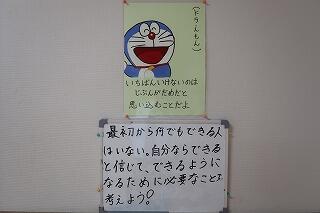 (ドラえもん)
いちばんいけないのは
じぶんがだめだと
思い込むことだよ
最初から何でもできる人
はいない。自分ならできる
と信じて、できるように
なるために必要なことを
考えよう!